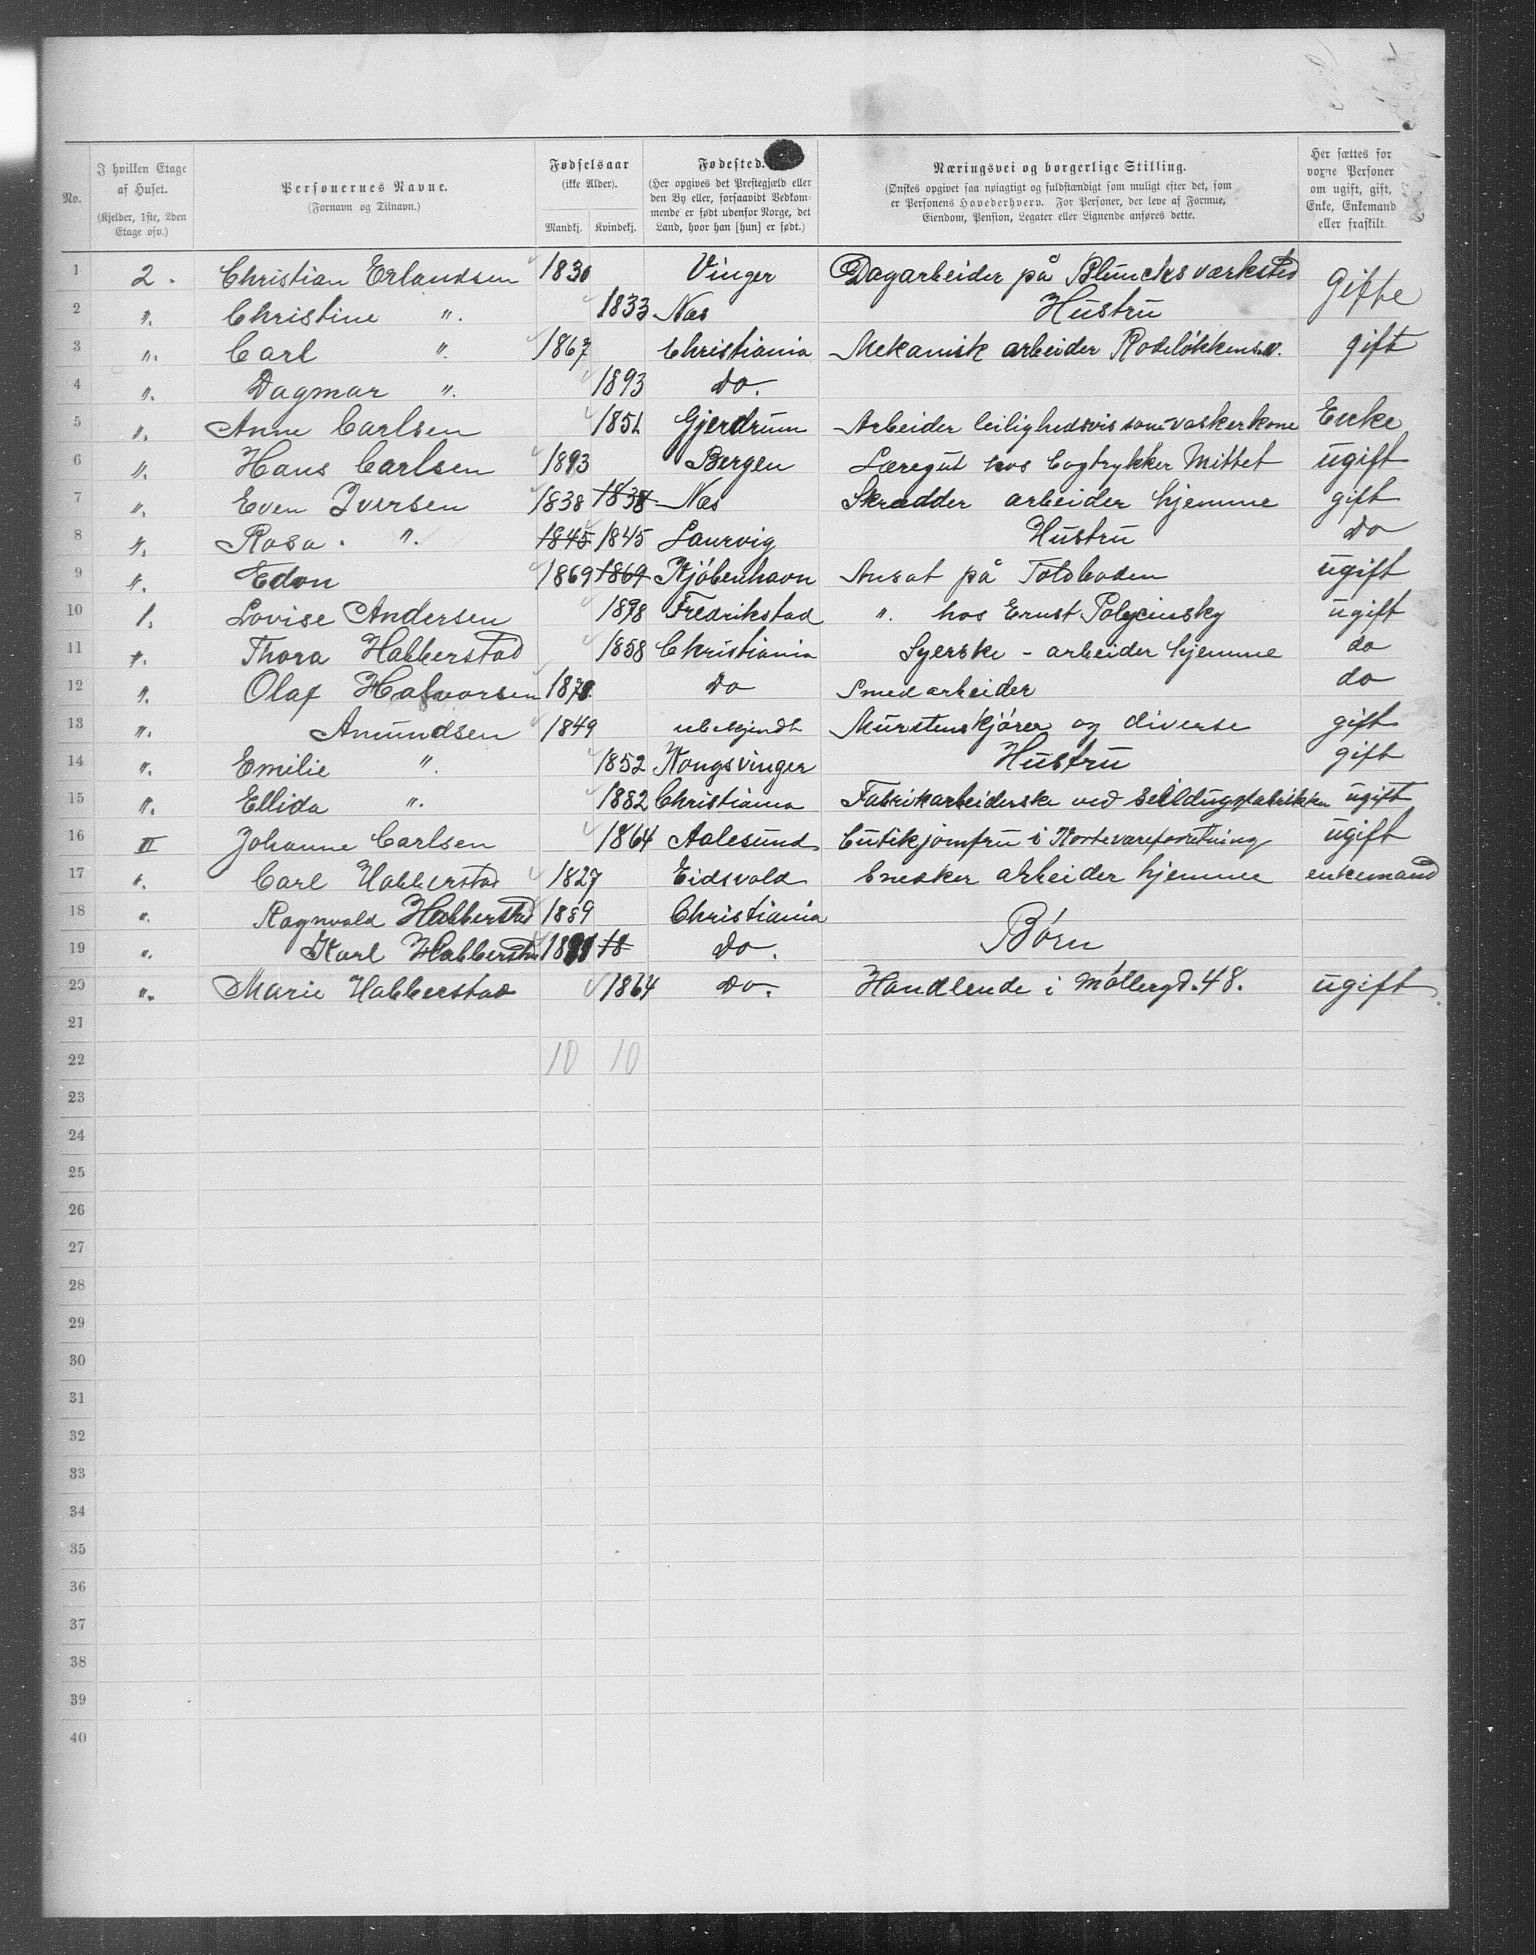 No.
I hvilken Etage af Huset. (Kjelder, 1ste, 2den Etage osv.)
Personernes Navne. (Fornavn og Tilnavn.)
Fødselsaar (ikke Alder). Mandkj. Kvindekj.
Fødested. (Her opgives det Prestegjæld eller den By eller, forsaavidt Vedkommende er født udenfor Norge, det Land, hvor han [hun] er født.)
Næringsvei og borgerlige Stilling. (Ønskes opgivet saa nøiagtigt og fuldstændigt som muligt efter det, som er Personens Hovederhverv. For Personer, der leve af Formue, Eiendom, Pension, Legater eller Lignende anføres dette.)
Her sættes for voxne Personer om ugift, gift, Enke, Enkemand eller fraskilt.
1 2. Christian Erlandsen 1830 Vinger Dagarbeider på Bluncks værksted Gifte
2 ". Christine ". 1833 Nas Hustru
3 ". Carl ". 1867 Christiania Mekanisk arbeider Rodeløkkens.v. gift
4 ". Dagmar ". 1893 Do.
5 ". Anne Carlsen 1851 Gjerdrum Arbeider leilighedsvis som vaskerkone Encke
6 ". Hans Carlsen 1883 Bergen Læregut hos Bogtrykker Mittet ugift
7 ". Even Iversen 1838 1838 Nas Skrædder arbeider hjemme gift
8 ". Rosa. ". 1845 1845 Laurvig Hustru Do
9 ". Edon 1869 1869 Kjøbenhavn Ansat på Toldboden ugift
10 1. Lovise Andersen 1898 Fredrikstad ". hos Ernst ugift
11 ". Thora Habberstad 1858 Christiania Syerske - arbeider hjemme do
12 ". Olaf Halvorsen 1878 Do Smed arbeider do
13 ". Amundsen 1849 ubekjendt Murstenskjører og diverse gift
14 ". Emilie ". 1852 Kongsvinger Hustru gift
15 ". Ellida ". 1882 Christiania Fabrikarbeiderske ved Seildugsfabrikken ugift
16 II Johanne Carlsen 1864 Aalesund Butikjomfru i Kortevareforretning ugift
17 ". Carl Habberstad 1827 Eidsvold Snedker arbeider hjemme enkemand
18 ". Ragnvald Habberstad 1889 Christiania
19 ". Karl Habberstad 1891 18 Do. Børn
20 ". Marie Habberstad 1864 Do. Handlende i Møllergd. 48. ugift.
21
22 10 10
23
24
25
26
27
28
29
30
31
32
33
34
35
36
37
38
39
40